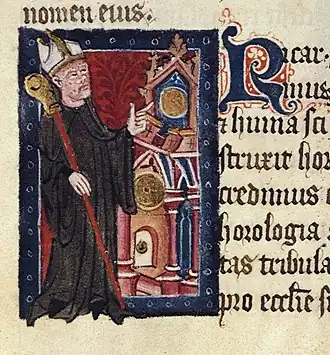 nomen eius.
Ricar.
mus
t huma sci
struxit hor
credimus
horologia
tas tribula
pro eccl̄ie s